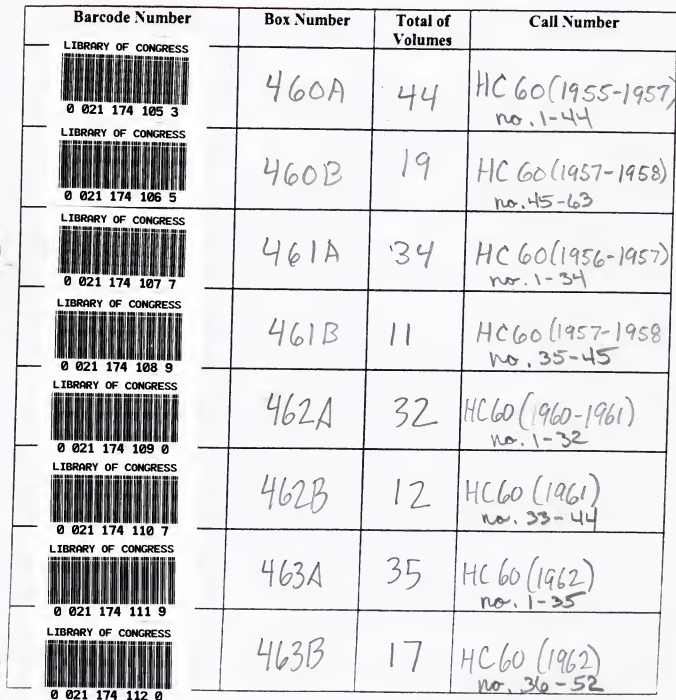 Barcode Number Box Number Total of Volumes Call Number
LIBRARY OF CONGRESS
0 021 174 105 3
460A 44 HC 60 (1955-1957)
no. 1-44
LIBRARY OF CONGRESS
0 021 174 106 5
460B 19 HC 60 (1957-1958)
no. 45-63
LIBRARY OF CONGRESS
0 021 174 107 7
461A 34 HC 60 (1956-1957)
no. 1-34
LIBRARY OF CONGRESS
0 021 174 108 9
461B 11 HC60 (1957-1958
no. 35-45
LIBRARY OF CONGRESS
0 021 174 109 0
462A 32 HC60 (1960-1961)
no. 1-32
LIBRARY OF CONGRESS
0 021 174 110 7
462B 12 HC60 (1961)
no. 33-44
LIBRARY OF CONGRESS
0 021 174 111 9
463A 35 HC 60 (1962)
no. 1-35
LIBRARY OF CONGRESS
0 021 174 112 0
463B 17 HC 60 (1962)
no. 36-52